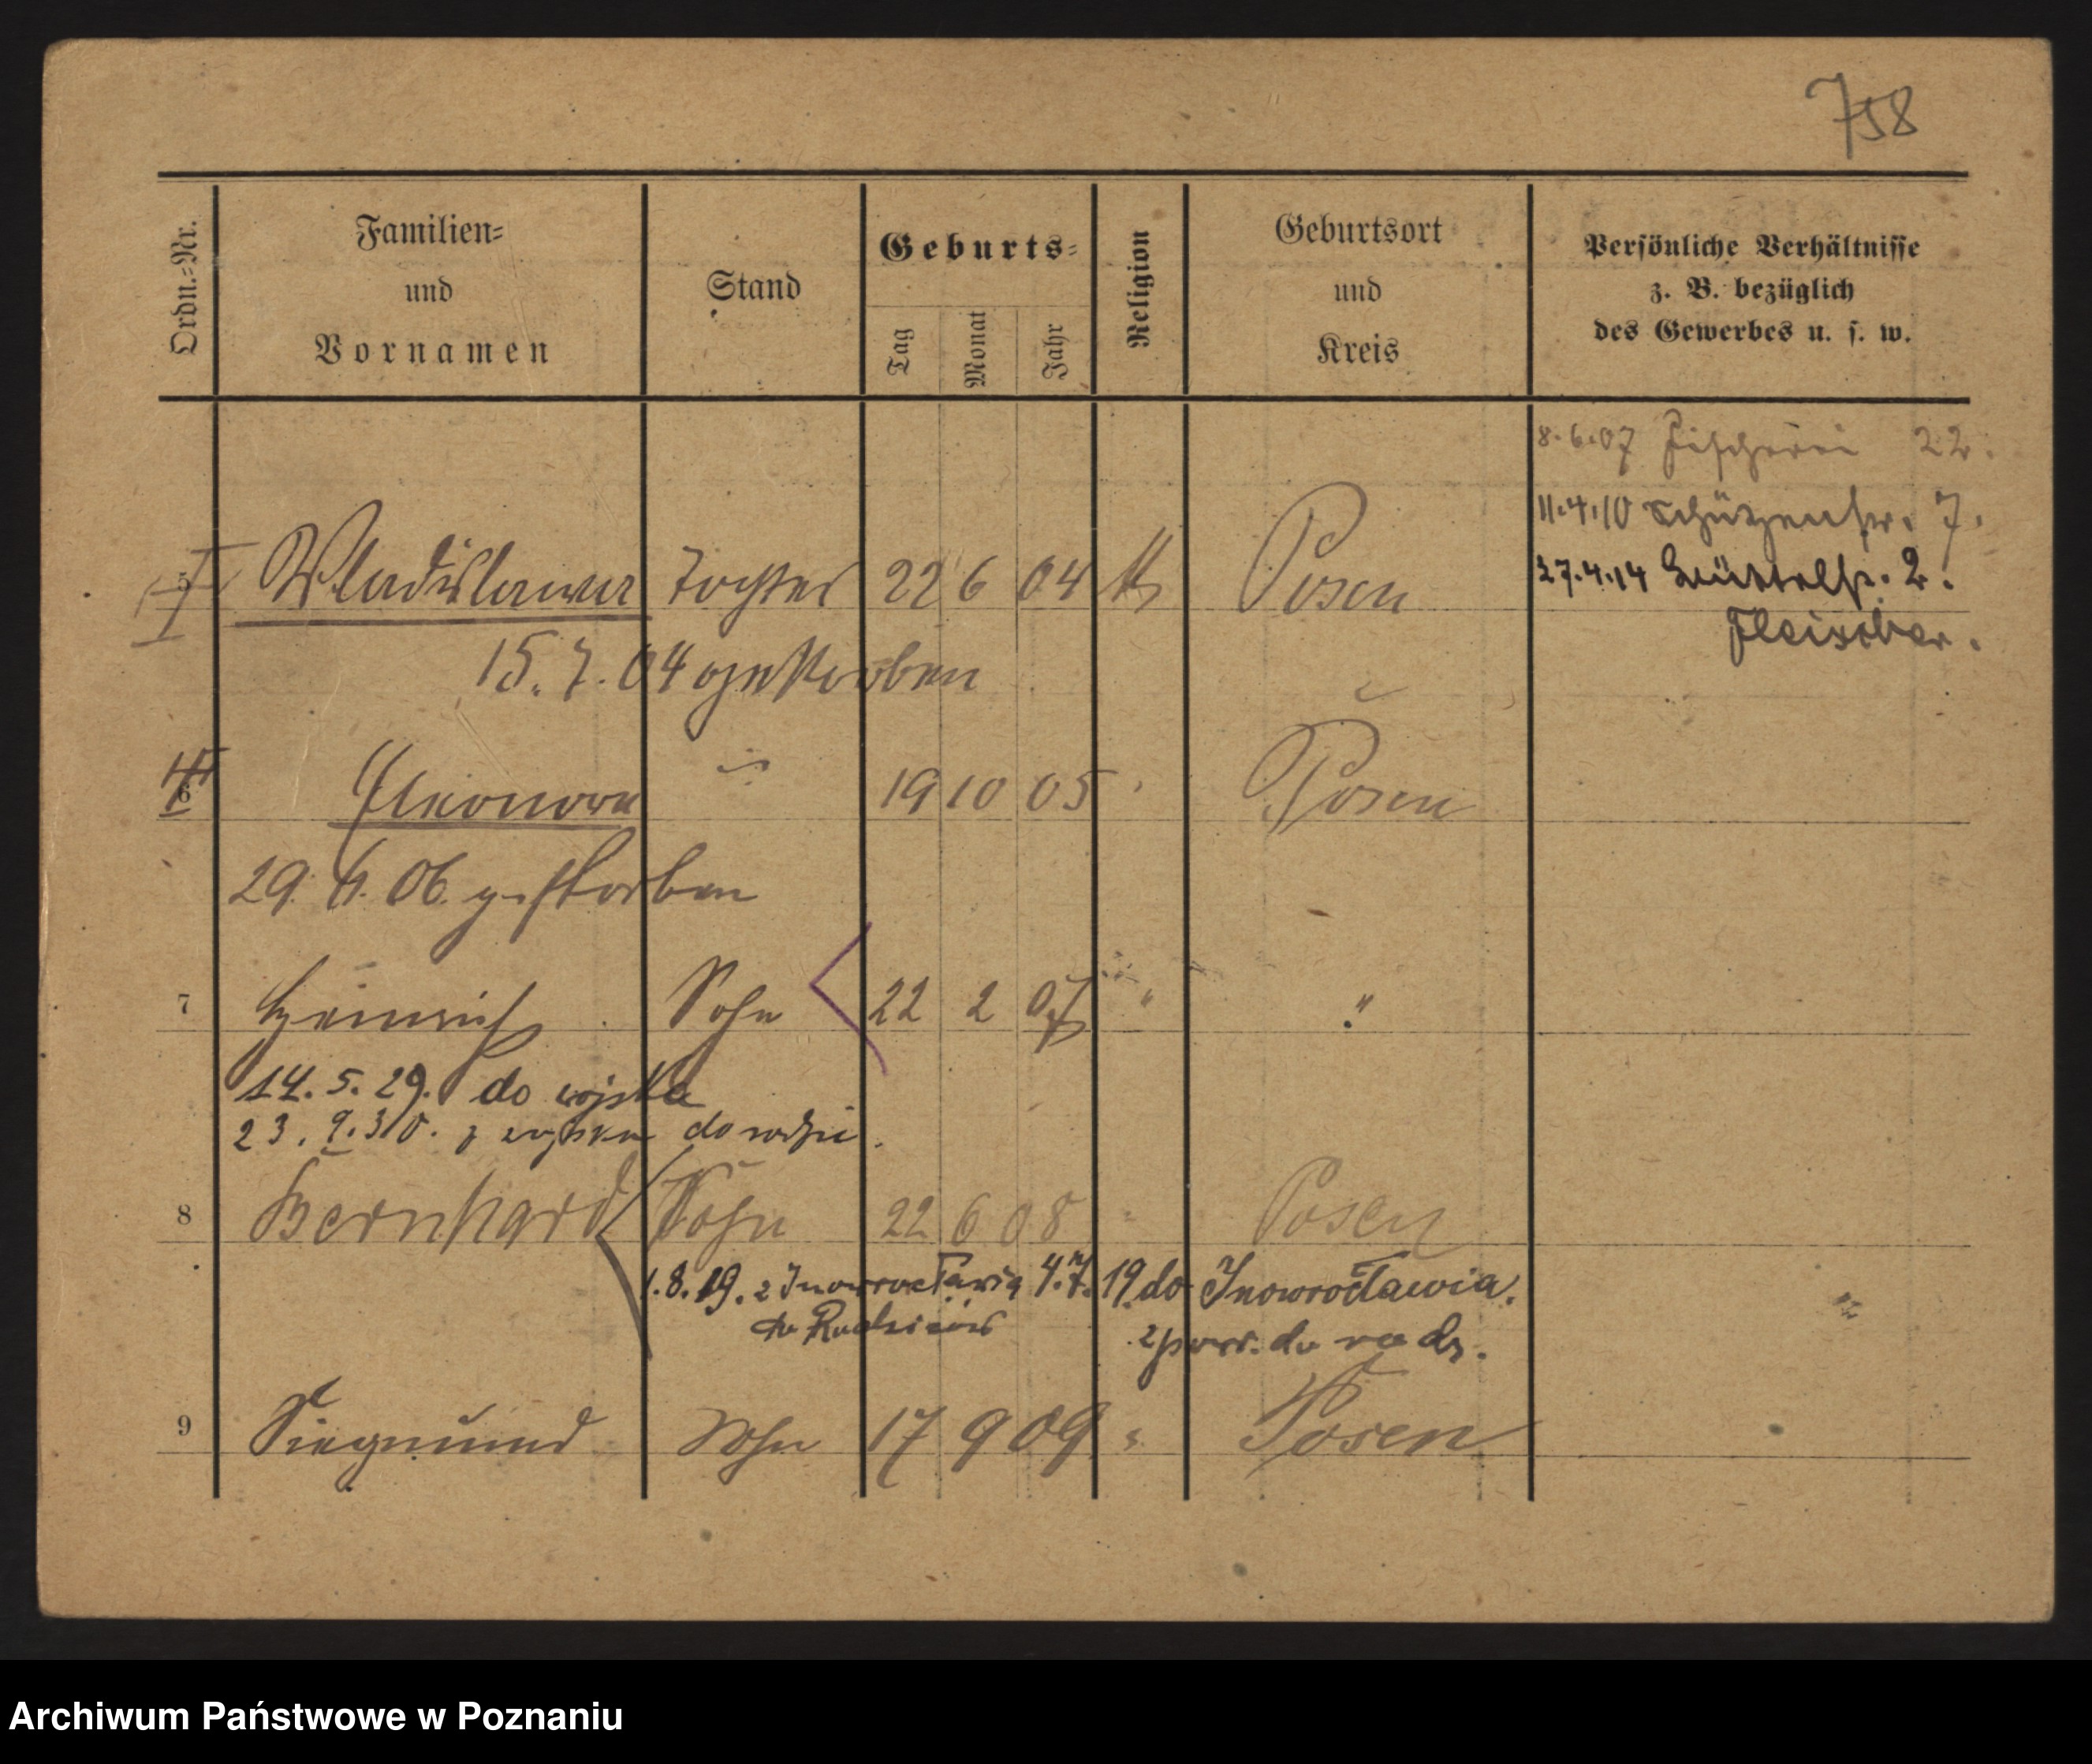 758
Ordn.=Nr. Familien= und Vornamen Stand Geburts= Tag Monat Jahr Religion Geburtsort und Kreis Persönliche Verhältnisse z. B. bezüglich des Gewerbes u. s. w.
8.6.07 Fischerei 22.
11.4.10 Schützenstr. 7.
5 Wladislawa Tochter 22 6 04 k Posen
27.4.14 Büttelstr. 2.
Fleischer.
15.7.04 gestorben
6 Eleonora " 19 10 05 " Posen
29. 6. 06. gestorben
7 Heinrich Sohn 22 2 07 " "
14. 5. 29. do wojska
23. 9. 30. z wojska do rodzic.
8 Bernhard Sohn 22 6 08 " Posen
1.8.19. z Inowrocławia 4.7.19. do Inowrocławia.
do Rodziców z pow. do rodz.
9 Siegmund Sohn 17 9 09 " Posen
Archiwum Państwowe w Poznaniu